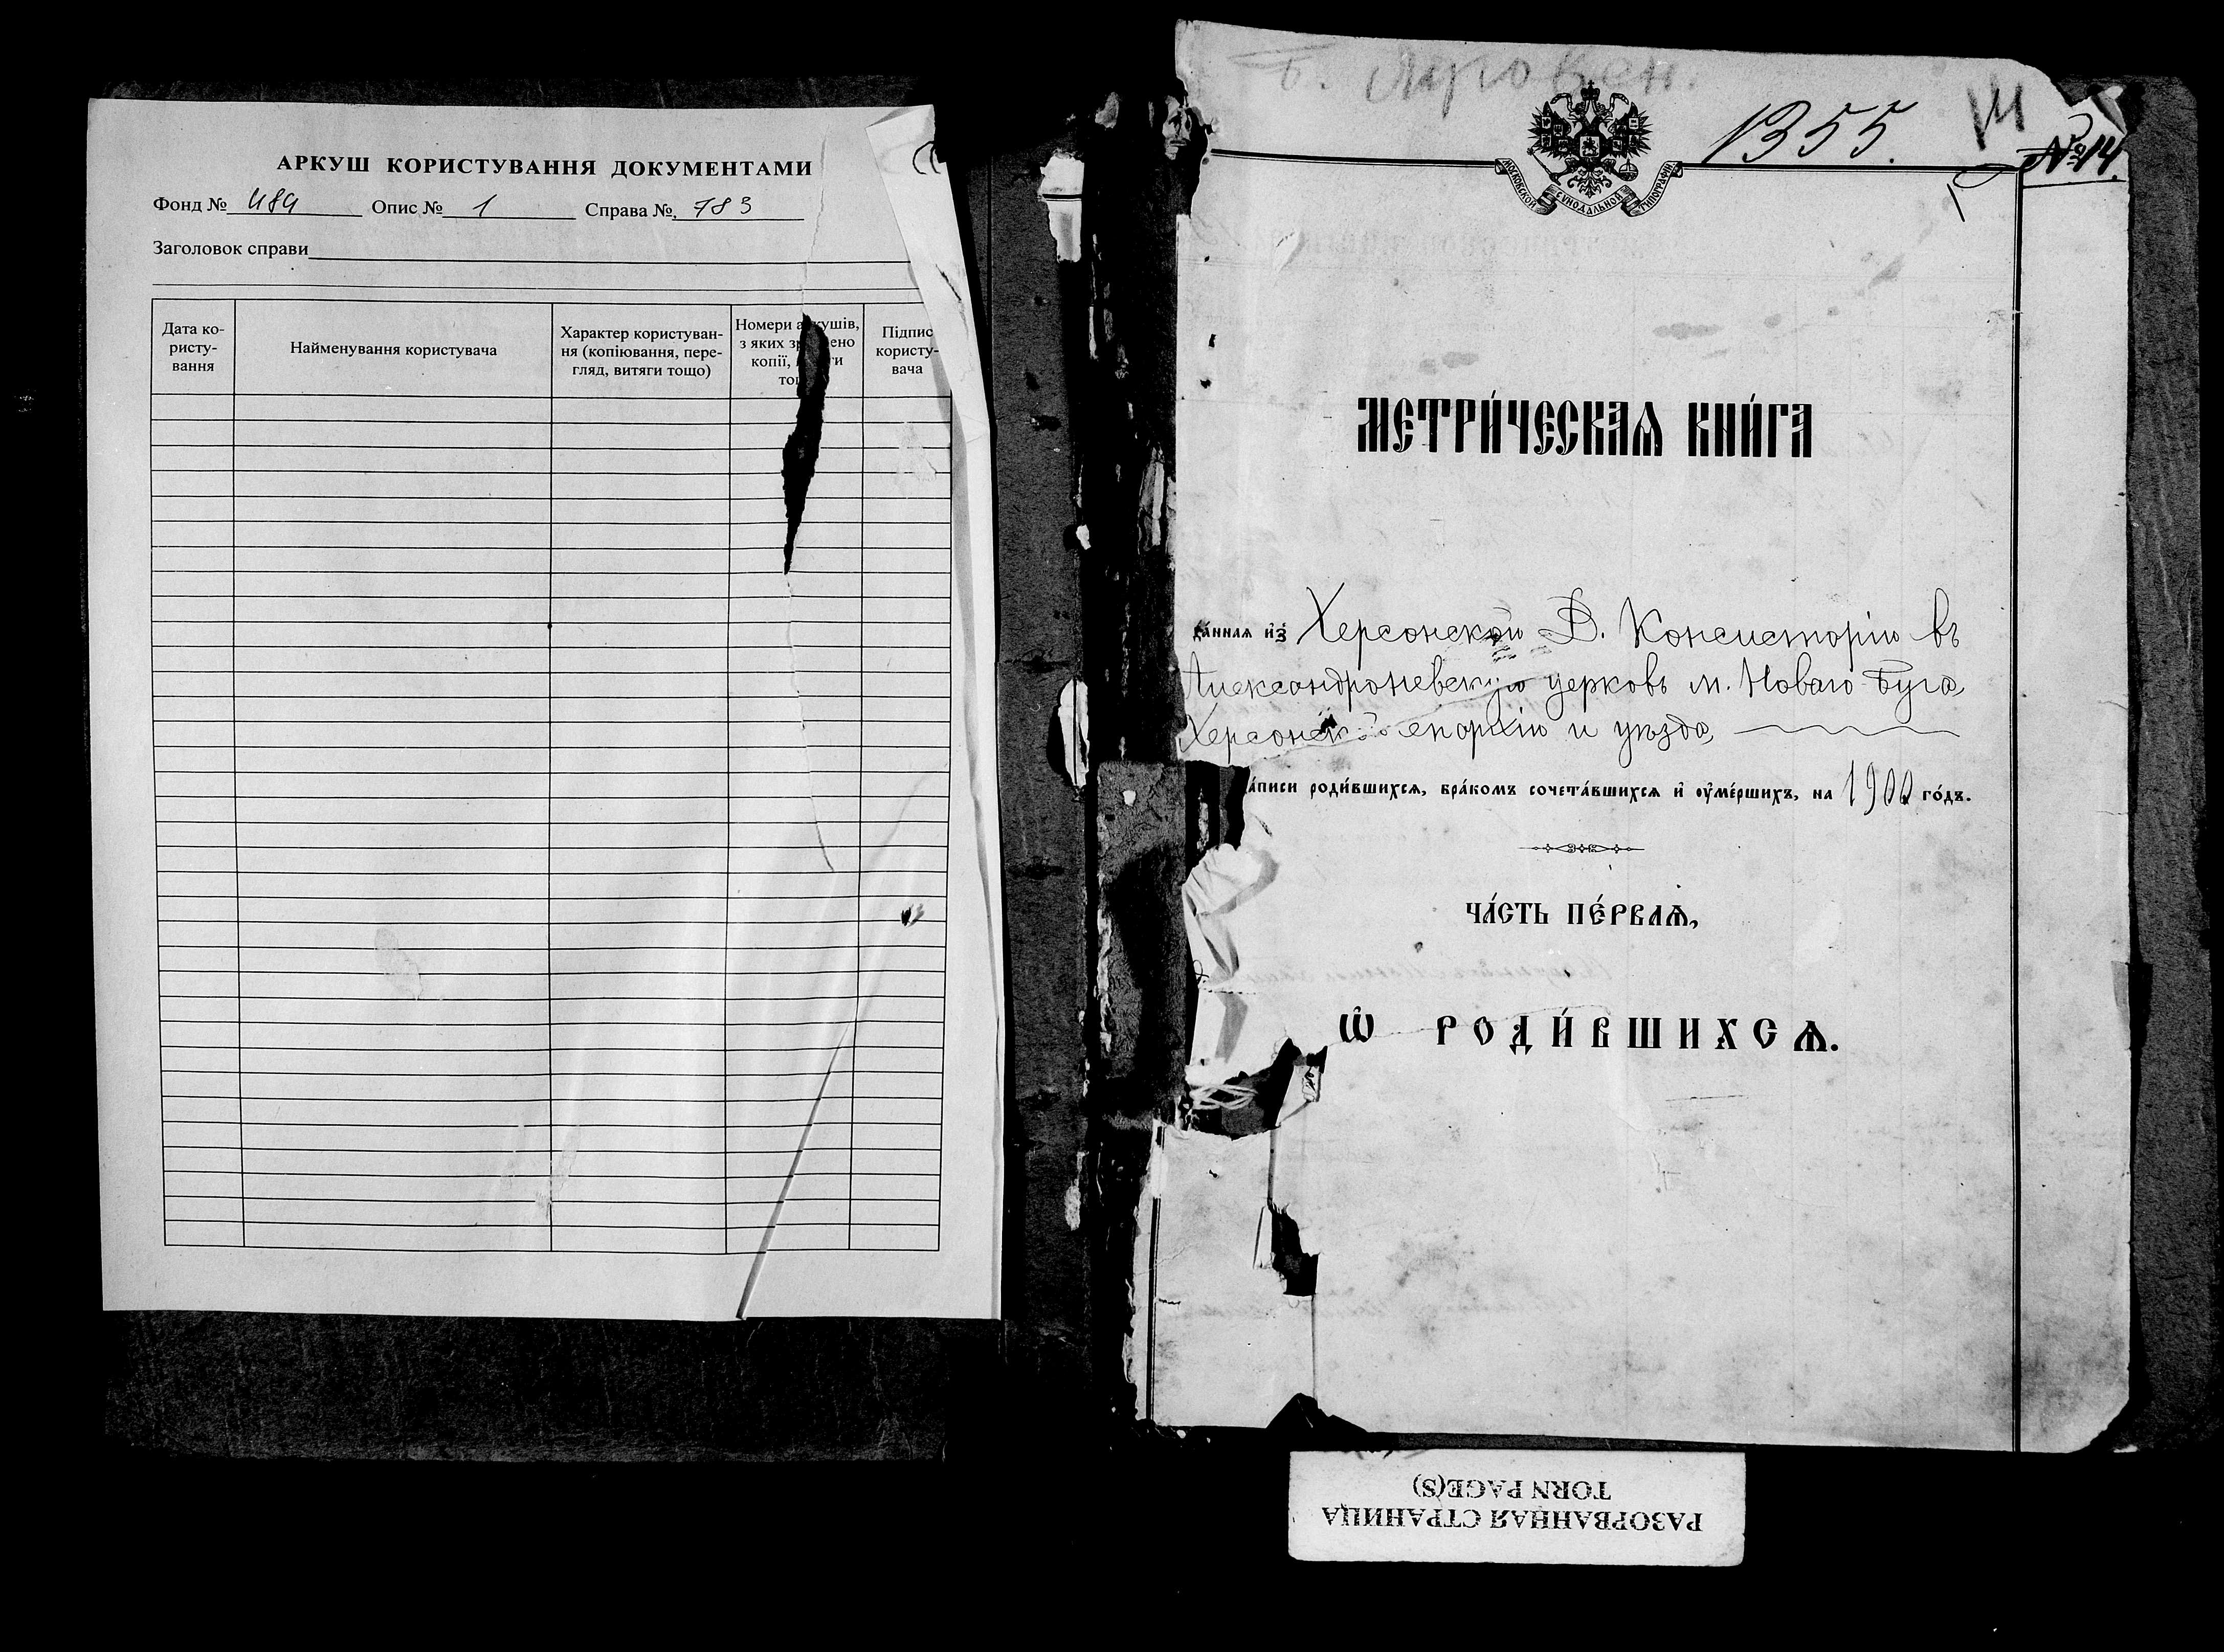 АРКУШ КОРИСТУВАННЯ ДОКУМЕНТАМИ
Фонд № 484 Опис № 1 Справа № 783
Заголовок справи
Дата ко-
ристу-
вання
Найменування користувача
Характер користуван-
ня (копіювання, пере-
гляд, витяги тощо)
Номери а кушів,
з яких зр ено
копії, ги
то
Підпис
користу-
вача
1355.
14
№ 14.
МОСКОВСКОЙ СѴНОДАЛЬНОЙ ТИПОГРАФІИ
МЕТРИ́ЧЕСКАѦ КНИ́ГА
да́ннаѧ и҆з̾ Херсонской Д. Консисторіи въ
Александроневскую церковь м. Новаго-Буга,
Херсонск епархіи и уѣзда,
а́писи роди́вшихсѧ, бра́комъ сочета́вшихсѧ и҆ ᲂу҆ме́ршихъ, на 1900 го́дъ.
ЧА́СТЬ ПЕ́РВАѦ,
Ѽ РОДИ́ВШИХСѦ.
РАЗОРВАННАЯ СТРАНИЦА
TORN PAGE(S)